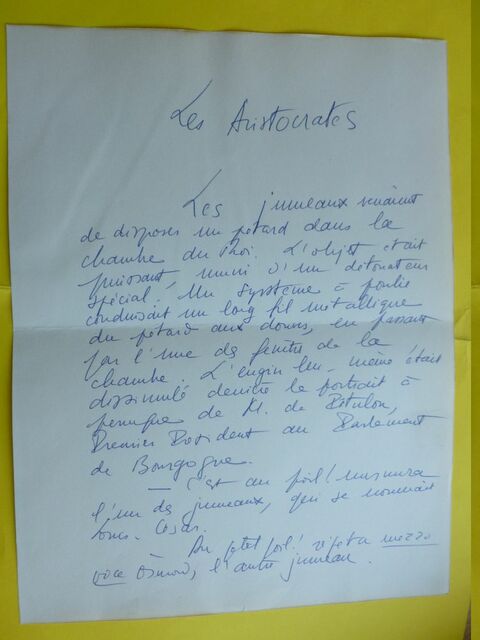 Les Aristocrates
Les jumeaux venaient
de disposer un pétard dans la
chambre du Roi. L'objet était
puissant, muni d'un détonateur
spécial. Un système à poulie
conduisait un long fil métallique
du pétard aux douves, en passant
par l'une des fenêtres de la
chambre. L'engin lui-même était
dissimulé derrière le portrait à
perruque de M. de
Premier Président au Parlement
de Bourgogne.
— C'est au poil! murmura
l'un des jumeaux, qui se nommait
Louis-César.
— Au petit poil! répéta mezzo
voce Osmond, l'autre jumeau.